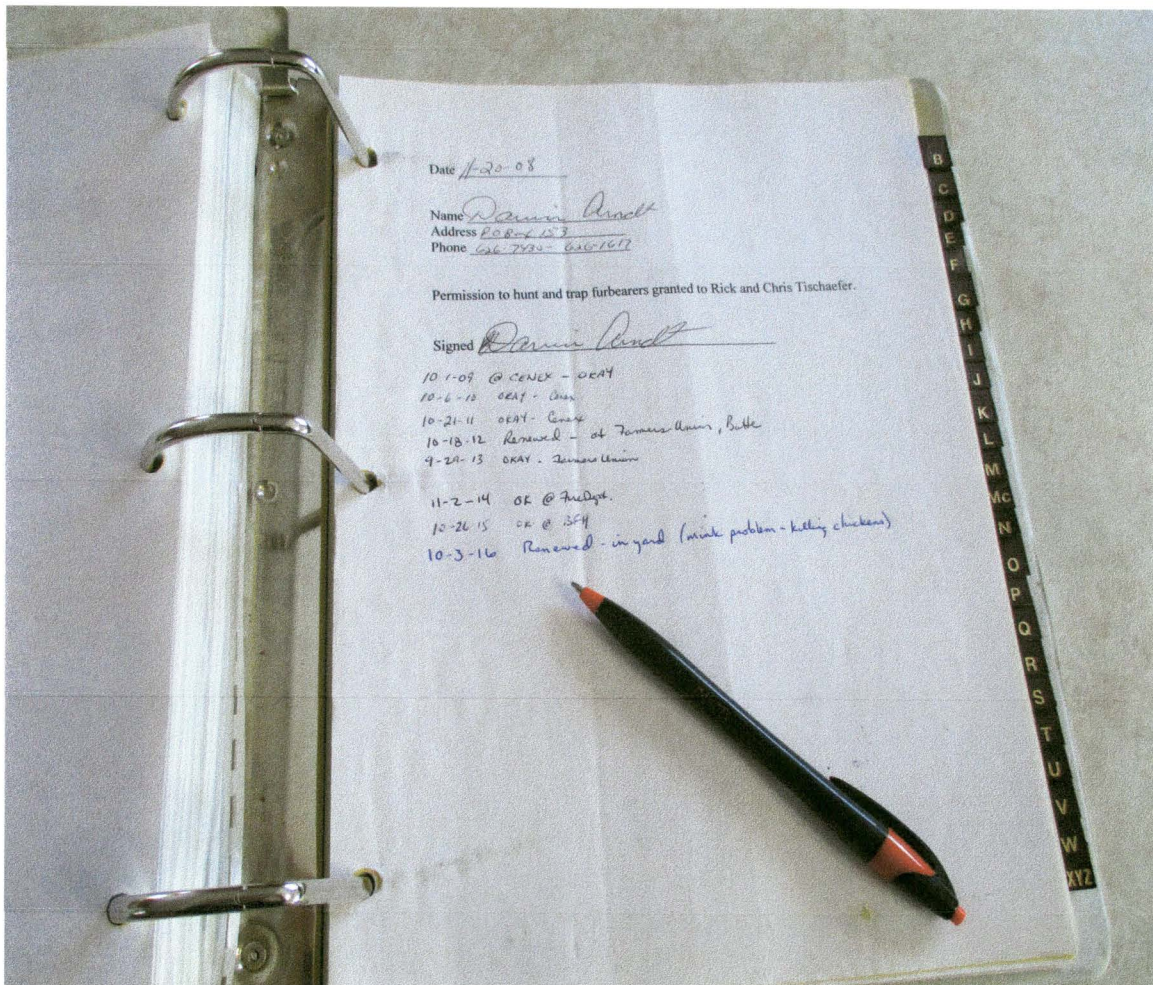 Date 11-20-08
Name Darwin Arndt
Address P O Box 153
Phone 626-7430 - 626-1617
Permission to hunt and trap furbearers granted to Rick and Chris Tischaefer.
Signed Darwin Arndt
10-1-09 @ CENEX - OKAY
10-6-10 OKAY - Cenex
10-21-11 OKAY - Cenex
10-18-12 Renewed - at Farmers Union, Butte
9-29-13 OKAY - Farmers Union
11-2-14 OK @
10-26-15 OK @
10-3-16 Renewed - in yard (mink problem - killing chickens)
B
C
D
E
F
G
H
I
J
K
L
M
Mc
N
O
P
Q
R
S
T
U
V
W
XYZ